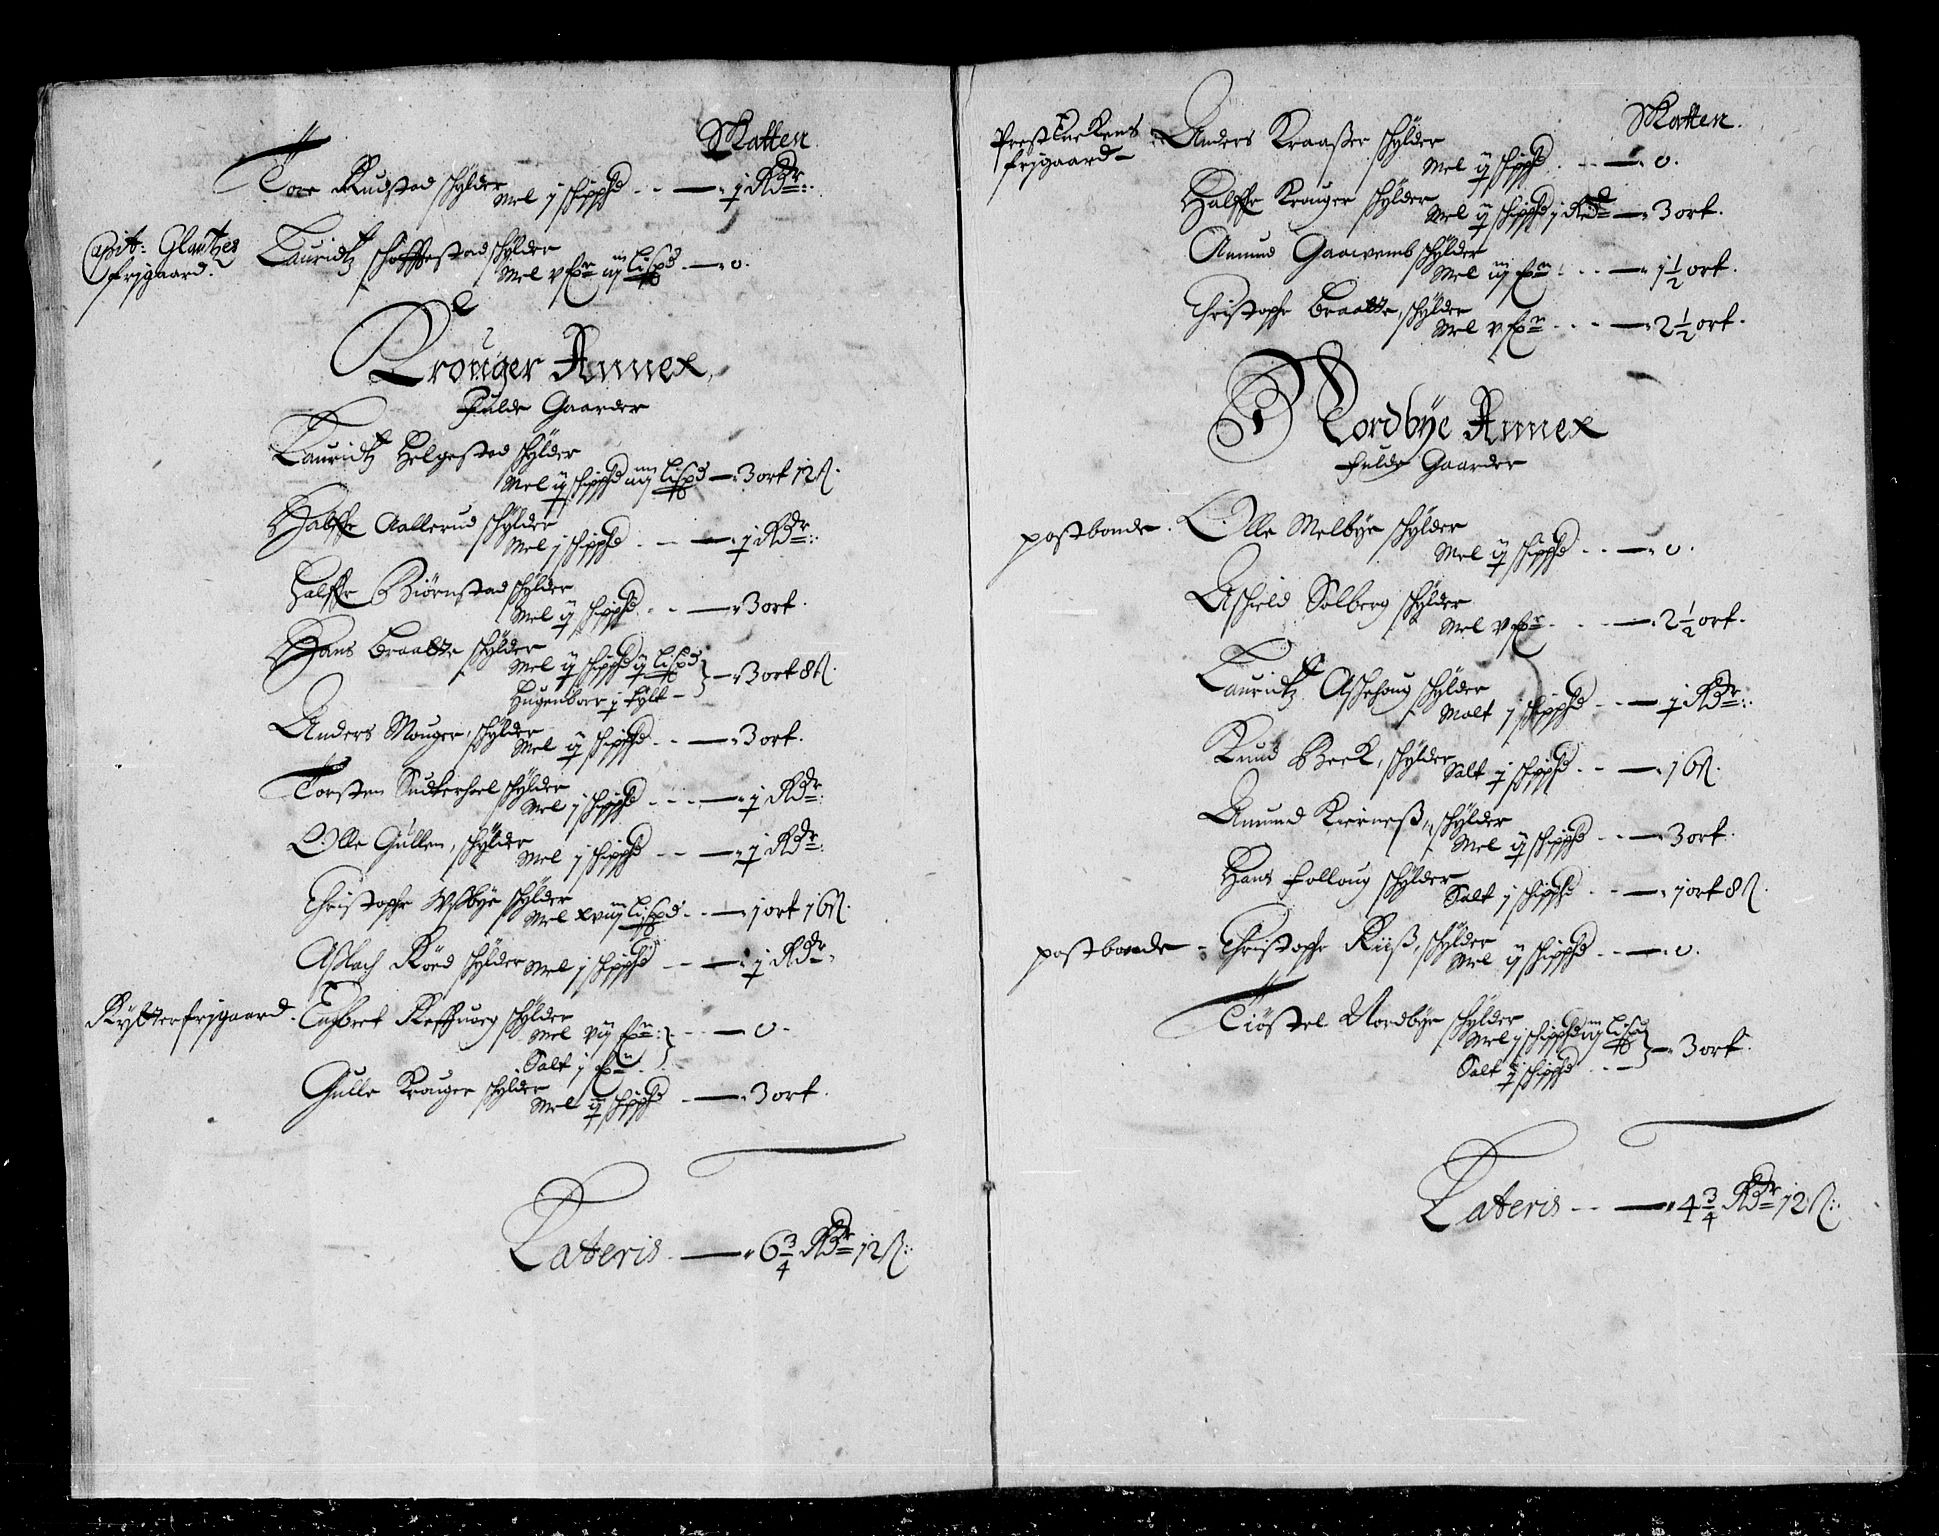 Skatten
Tore Rudstad schylder
Mel j schippd - - — j Rdr:
Capit: Glautzes
frijgaard.
Lauridtz schofftestad schylder
Mel v fr iiij Lispd — 0.
Krouger Annex,
Fulde Gaarder
Lauridtz Helgestad schylder
Mel ij schippd iiij Lispd — 3 ort 12 ß.
Halffe Aallerud schylder
Mel j schippd - - — j Rdr:
Halffe Biörnstad schylder
Mel ij schippd - - — 3 ort.
Hans Braatte schylder
Mel ij schippd ij Lispd
Hugenboer j tylt — 3 ort 8 ß.
Anders Mouger, schylder
Mel ij schippd - - — 3 ort.
Torsten schylder
Mel j schippd - - - — j Rdr:
Olle Gullen, schylder
Mel j schippd - - — j Rdr:
Christophr schylder
Mel xviij Lispd - - — j ort 16 ß.
Aslach Röed schylder Mel j schippd - - — j Rdr.
Rytterfrijgaard. Engbret schylder
Mel vij fr:
Salt j fr - - — 0.
Gulle Krouger schylder
Mel ij schippd - — 3 ort.
Lateris — 6 3/4 Rdr 12 ß:
Skatten.
Prest Enckens
frijgaard —
Anders Kraaßer schylder
Mel ij schippd - - — 0.
Halffe Krouger schylder
Mel ij schippd j — 3 ort.
Amund schylder
Mel iij fr - - - — 1 1/2 ort.
Christophr Braatte, schylder
Mel v fr - - - — 2 1/2 ort.
Nordbye Annex
Fulde Gaarder
postbonde. Olle Melbye schylder
Mel ij schippd - - — 0.
Solberg schylder
Mel v fr - - - — 2 1/2 ort.
Lauridtz Aschehoug schylder
Malt j schippd - - — j Rdr:
Knud Beck, schylder
Salt j schippd - - — 16 ß.
Amund Kierneß, schylder
Mel ij schippd - - — 3 ort.
Hans Follaug schylder
Salt j schippd - - — j ort 8 ß.
postbonde - Christophr Riiß, schylder
Mel ij schippd - - — 0.
Tiöstel Nordbye schylder
Mel j schippd iiij Lispd
Salt ij schippd - - — 3 ort.
Lateris - - — 4 3/4 Rdr 12 ß: